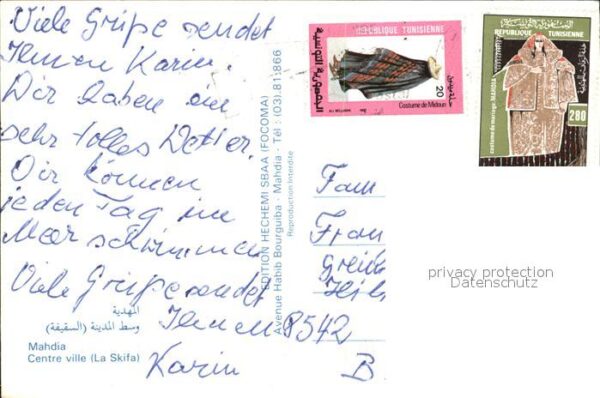 Viele Grüße sendet
Ihnen Karin.
Wir haben ein
sehr tolles Wetter.
Wir können
jeden Tag im
Meer schwimmen
Viele Grüße sendet
Ihnen
Karin
المهدية
وسط المدينة (السقيفة)
Mahdia
Centre ville (La Skifa)
EDITION HECHEMI SBAA (FOCOMA)
Avenue Habib Bourguiba - Mahdia - Tél : (03).81.866
Reproduction Interdite
REPUBLIQUE TUNISIENNE
الجمهورية التونسية
20
Costume de Midoun
REPUBLIQUE TUNISIENNE
costume de mariage MAHDIA
280
Fam
Fran
8542
B
privacy protection
Datenschutz